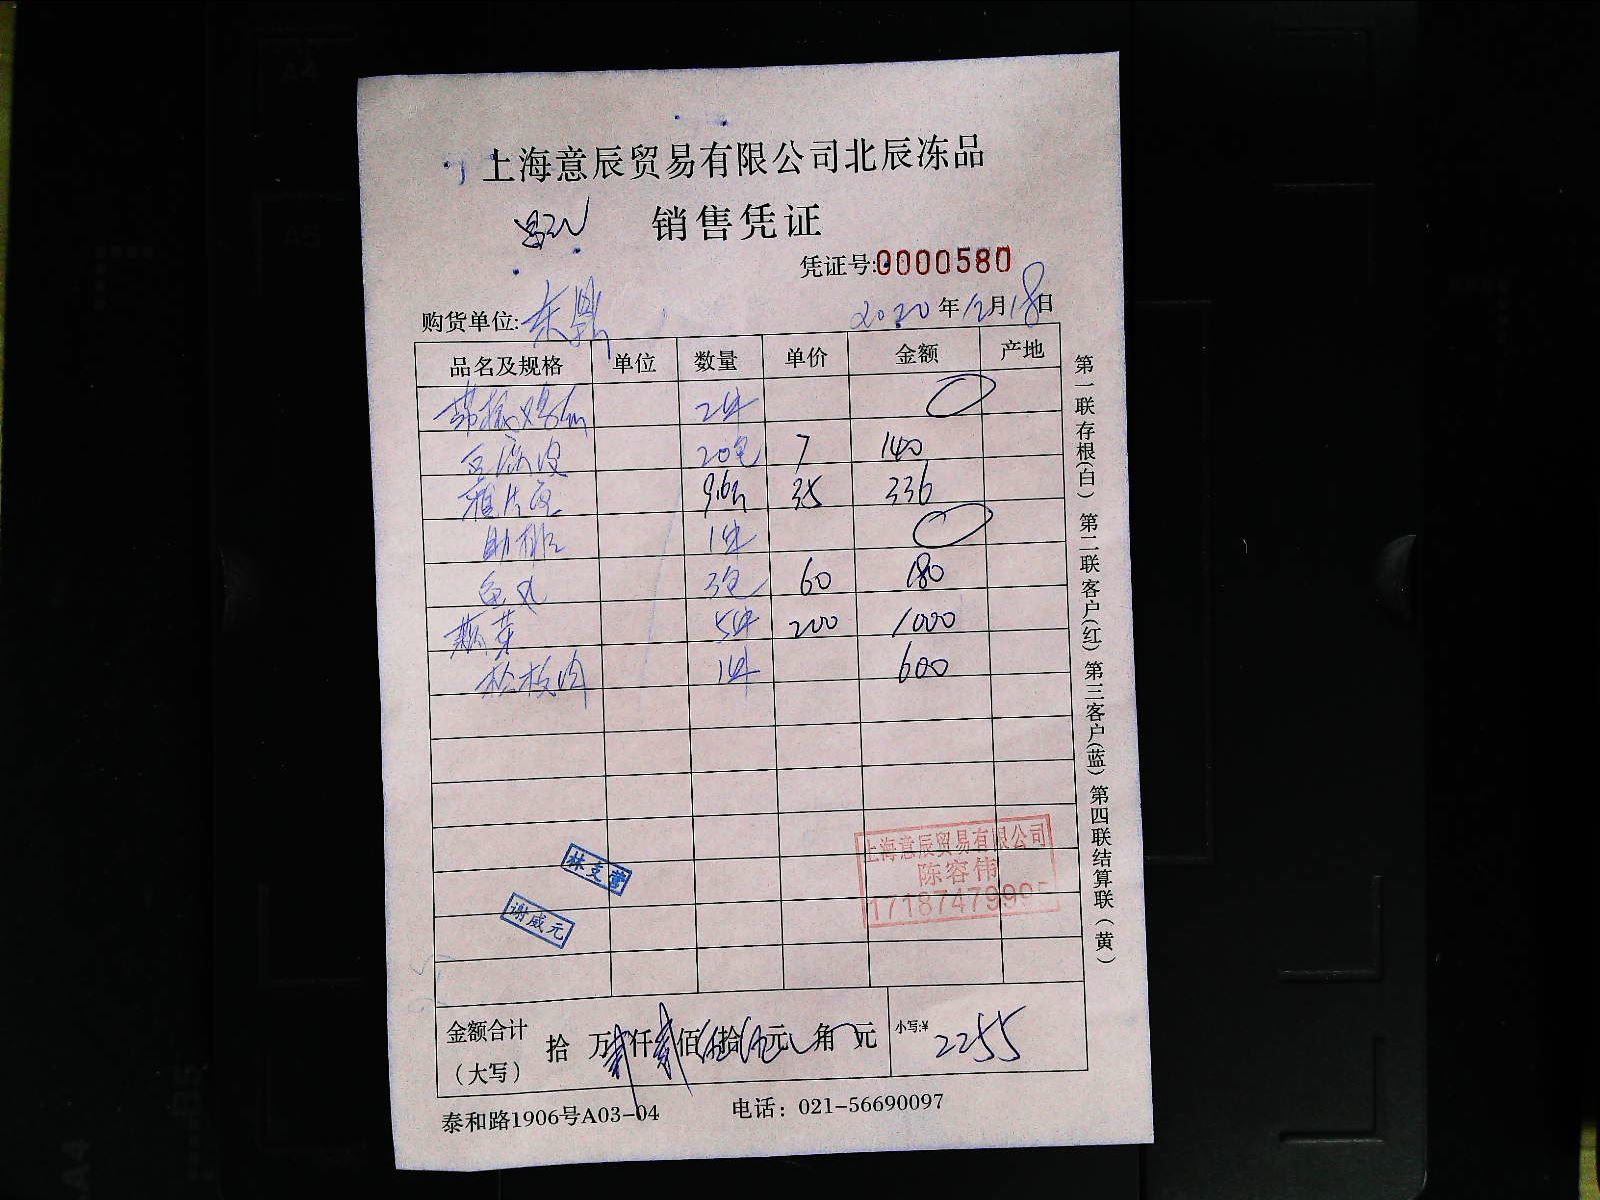 上海意辰贸易有限公司北辰冻品
销售凭证
凭证号:0000580
购货单位:东鼎 2020年12月18日
品名及规格 单位 数量 单价 金额 产地
2件
豆腐皮 20包 7 140
9.6 35 336
肋排 1件
鱼丸 3包 60 180
5件 200 1000
松板肉 1件 600
林支营
谢威元
上海意辰贸易有限公司
陈容伟
金额合计(大写) 拾 万贰仟贰佰伍拾伍元 角 元 小写:¥ 2255
泰和路1906号A03-04 电话:021-56690097
第一联存根(白) 第二联客户(红) 第三客户(蓝) 第四联结算联(黄)